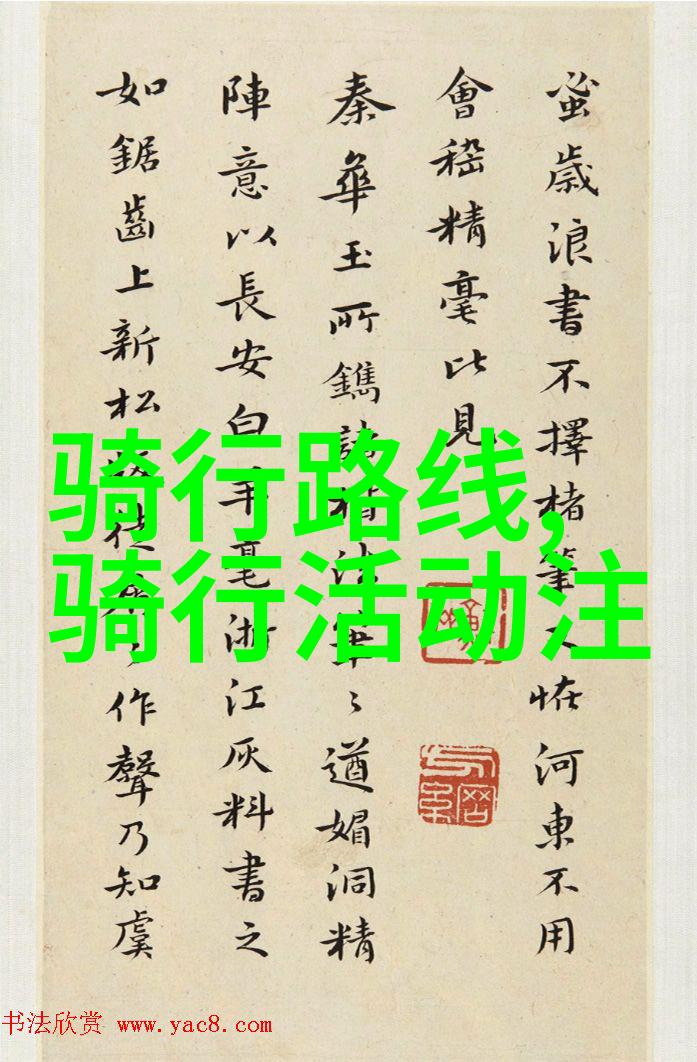 蚤歲浪書不擇楮筆恠河東不用
會稽精毫比見
秦華玉所鐫諸楷法筆〻遒媚洞精
陣意以長安白羊毫浙江灰料書之
如鋸齒上新松作聲乃知虞
骑行路线,
骑行活动注
书法欣赏 www.yac8.com